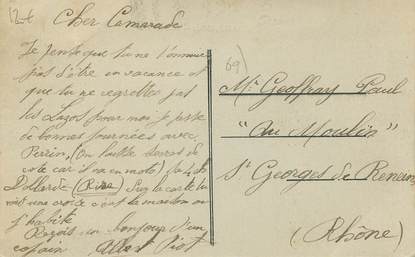 Cher Camarade
Je pense que tu ne t'ennuie
pas d'être en vacance et
que tu ne regrettes pas
les Lazos pour moi je passe
de bonnes journées avec
Perrin, (On laisse
cote car il va en moto)
(Rire) Sur la carte tu
vois une croix c'est la maison ou
j'habite
Reçois un bonjour d'un
copain Albert Piot
69)
Mr Geoffray Paul
"Au Moulin"
St Georges de Reneins
(Rhône)